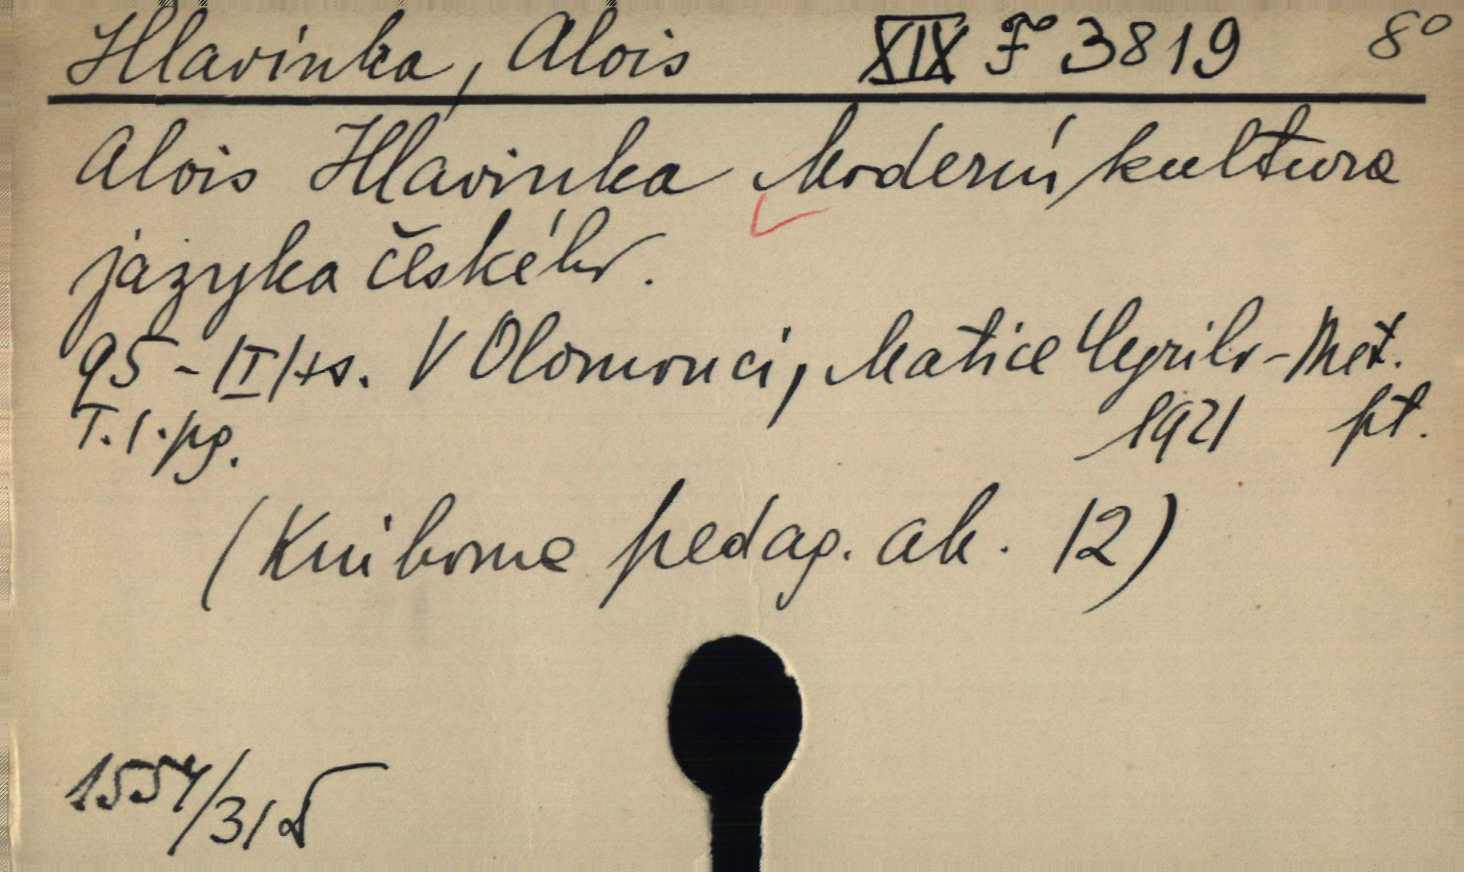 Hlavinka, Alois XIX F 3819 8°
Alois Hlavinka Moderní kultura
jazyka českého.
95-/II/+s. V Olomouci, Matice Cyrilo-Met.
T.l.pg. 1921 pt.
(Knihovna pedag. ak. 12)
1554/31